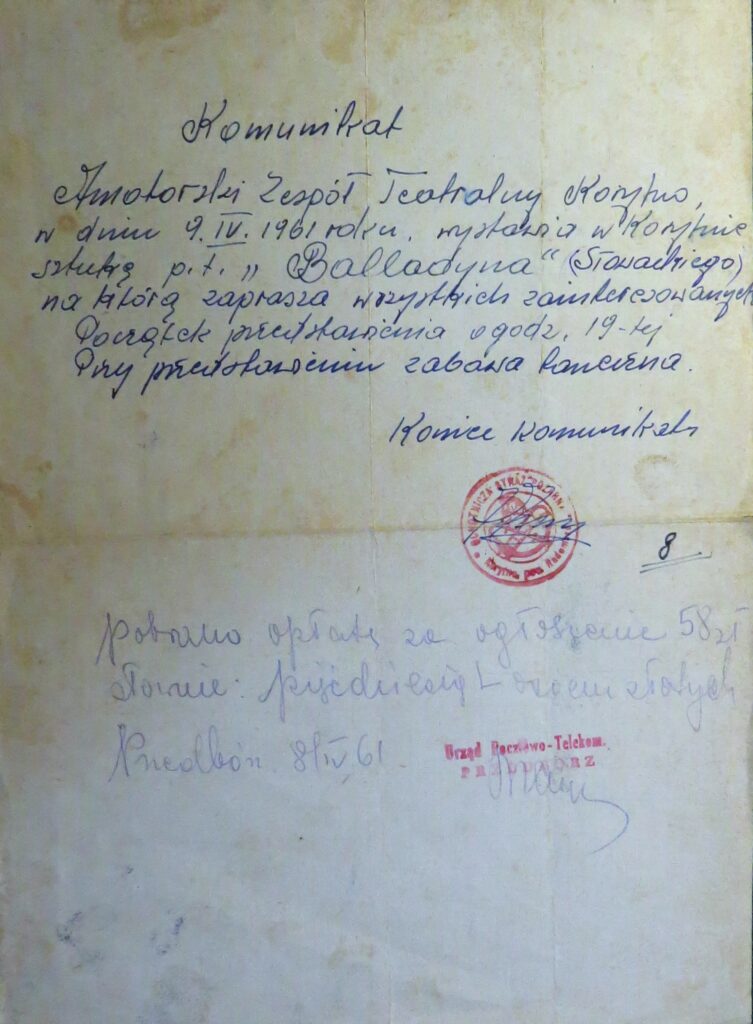 Komunikat
Amatorski Zespół Teatralny Korytno,
w dniu 9.IV.1961 roku, wystawia w Korytnie
sztukę p.t. „Balladyna" (Słowackiego)
na którą zaprasza wszystkich zainteresowanych
Początek przedstawienia o godz. 19-tej
Przy przedstawieniu zabawa taneczna.
Koniec komunikatu
OCHOTNICZA STRAŻ POŻARNA
8
pobrano opłatę za ogłoszenie 58 zł
słownie: pięćdziesiąt osiem złotych
Przedbórz 8/IV 61.
Urząd Pocztowo-Telekom.
PRZEDBÓRZ